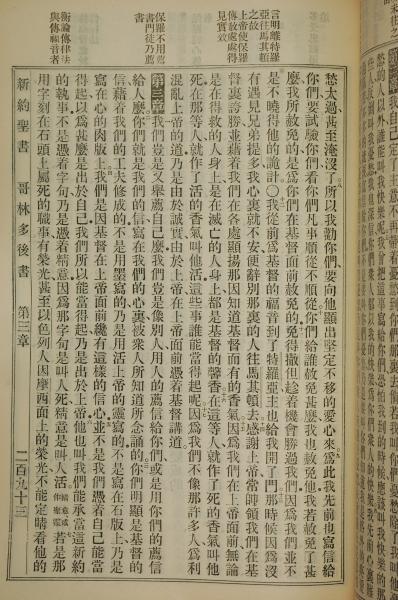 言明離特羅
亞往馬其頓
之故
上帝使保羅
傳教處處得
見實效
保羅不用薦
書門徒乃薦
書
衡論傳律法
與傳福音者
愁太過甚至淹沒了所以我勸你們要向他顯出堅定不移的愛心來爲此我先前也寫信給
你們要試驗你們看你們凡事順從不順從你們給誰赦免甚麼我也赦免他我若赦免了甚
麼我所赦免的是爲你們在基督面前赦免的免得撒但趁着機會勝過我們因爲我們並不
是不曉得他的詭計〇我從前爲基督的福音到了特羅亞主也給我開了門那時候因爲沒
有遇見兄弟提多我心裏就不安便辭別那裏的人往馬其頓去感謝上帝常時領我們在基
督裏誇勝並藉着我們在各處顯揚那因知道基督而有的香氣因爲我們在上帝面前無論
是在得救的人身上是在滅亡的人身上都是基督的馨香在這等人就作了死的香氣叫他
死在那等人就作了活的香氣叫他活這些事誰能當得起呢因爲我們不像那許多人爲利
混亂上帝的道乃是由於誠實由於上帝在上帝面前憑着基督講道
第三章我們豈是又舉薦自己麼我們豈是像別人用人的薦信給你們或是用你們的薦信
給人麼你們就是我們的信寫在我們的心裏被衆人所知道所念誦的你們明顯是基督的
信藉着我們的工夫修成的不是用墨寫的乃是用活上帝的靈寫的不是寫在石版上乃是
寫在心的肉版上我們是因基督在上帝面前纔有這樣的信心並不是我們憑着自己能當
得起以爲甚麼是出於自己我們所以能當得起乃是出於上帝他也叫我們能承當這新約
的執事不是憑着字句乃是憑着精意因爲那字句是叫人死精意是叫人活精意或作聖靈若是那
用字刻在石頭上屬死的職事有榮光甚至以色列人因摩西面上的榮光不能定睛看他的
新約聖書 哥林多後書 第三章 二百九十三